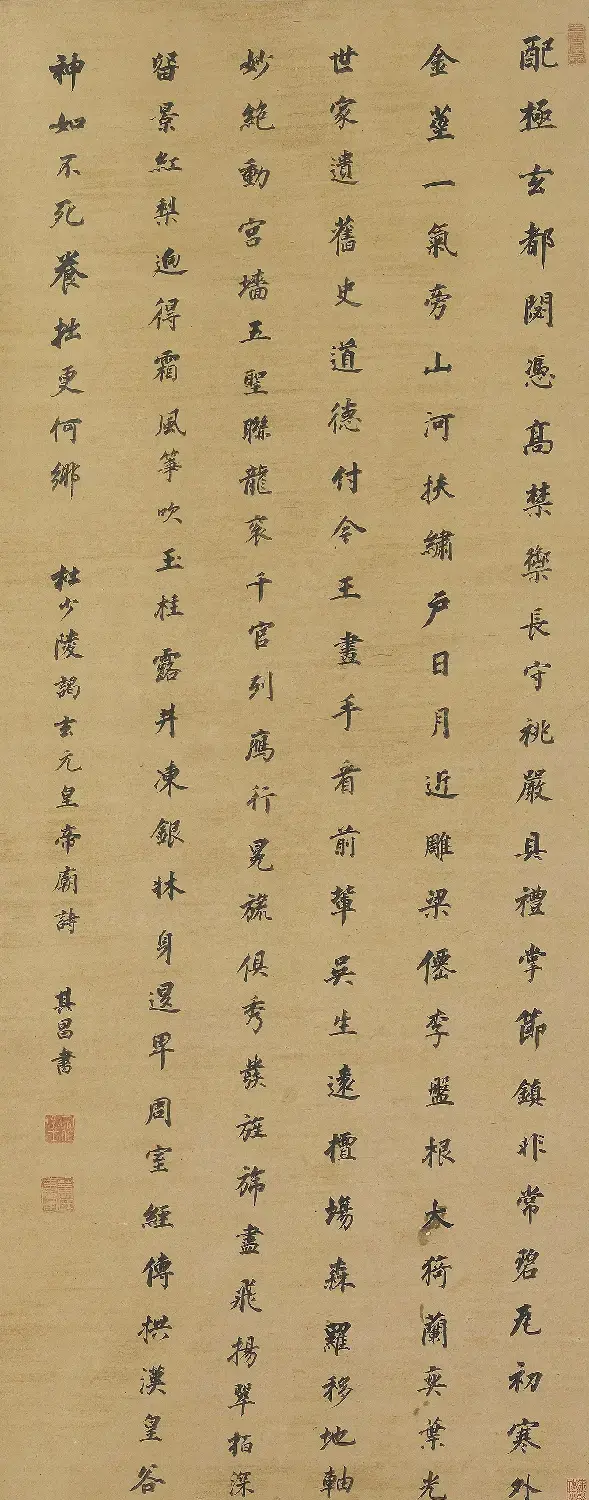 配極玄都閟憑高禁籞長守祧嚴具禮掌節鎮非常碧瓦初寒外
金莖一氣旁山河扶繡戶日月近雕梁僊李盤根大猗蘭奕葉光
世家遺舊史道德付今王畫手看前輩吳生遠擅場森羅移地軸
妙絕動宮墻五聖聯龍衮千官列鴈行冕旒俱秀發旌旆盡飛揚翠栢深
留景紅梨迥得霜風箏吹玉柱露井凍銀牀身退卑周室經傳拱漢皇谷
神如不死養拙更何鄉 杜少陵謁玄元皇帝廟詩 其昌書